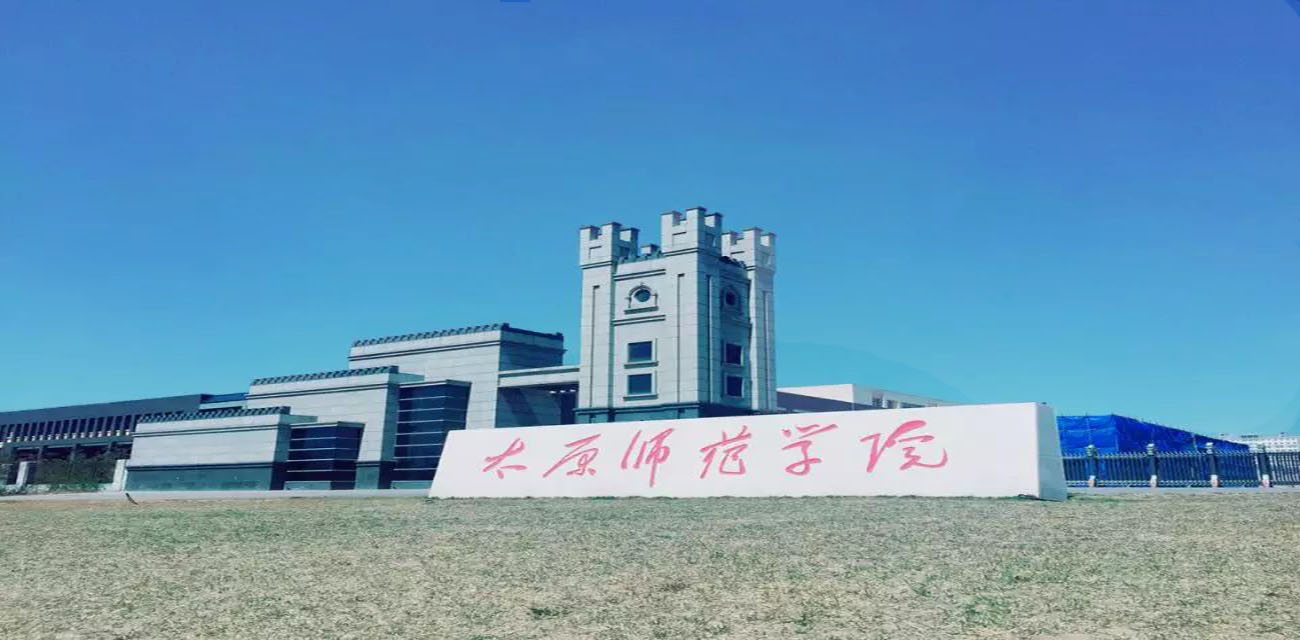 太原师范学院